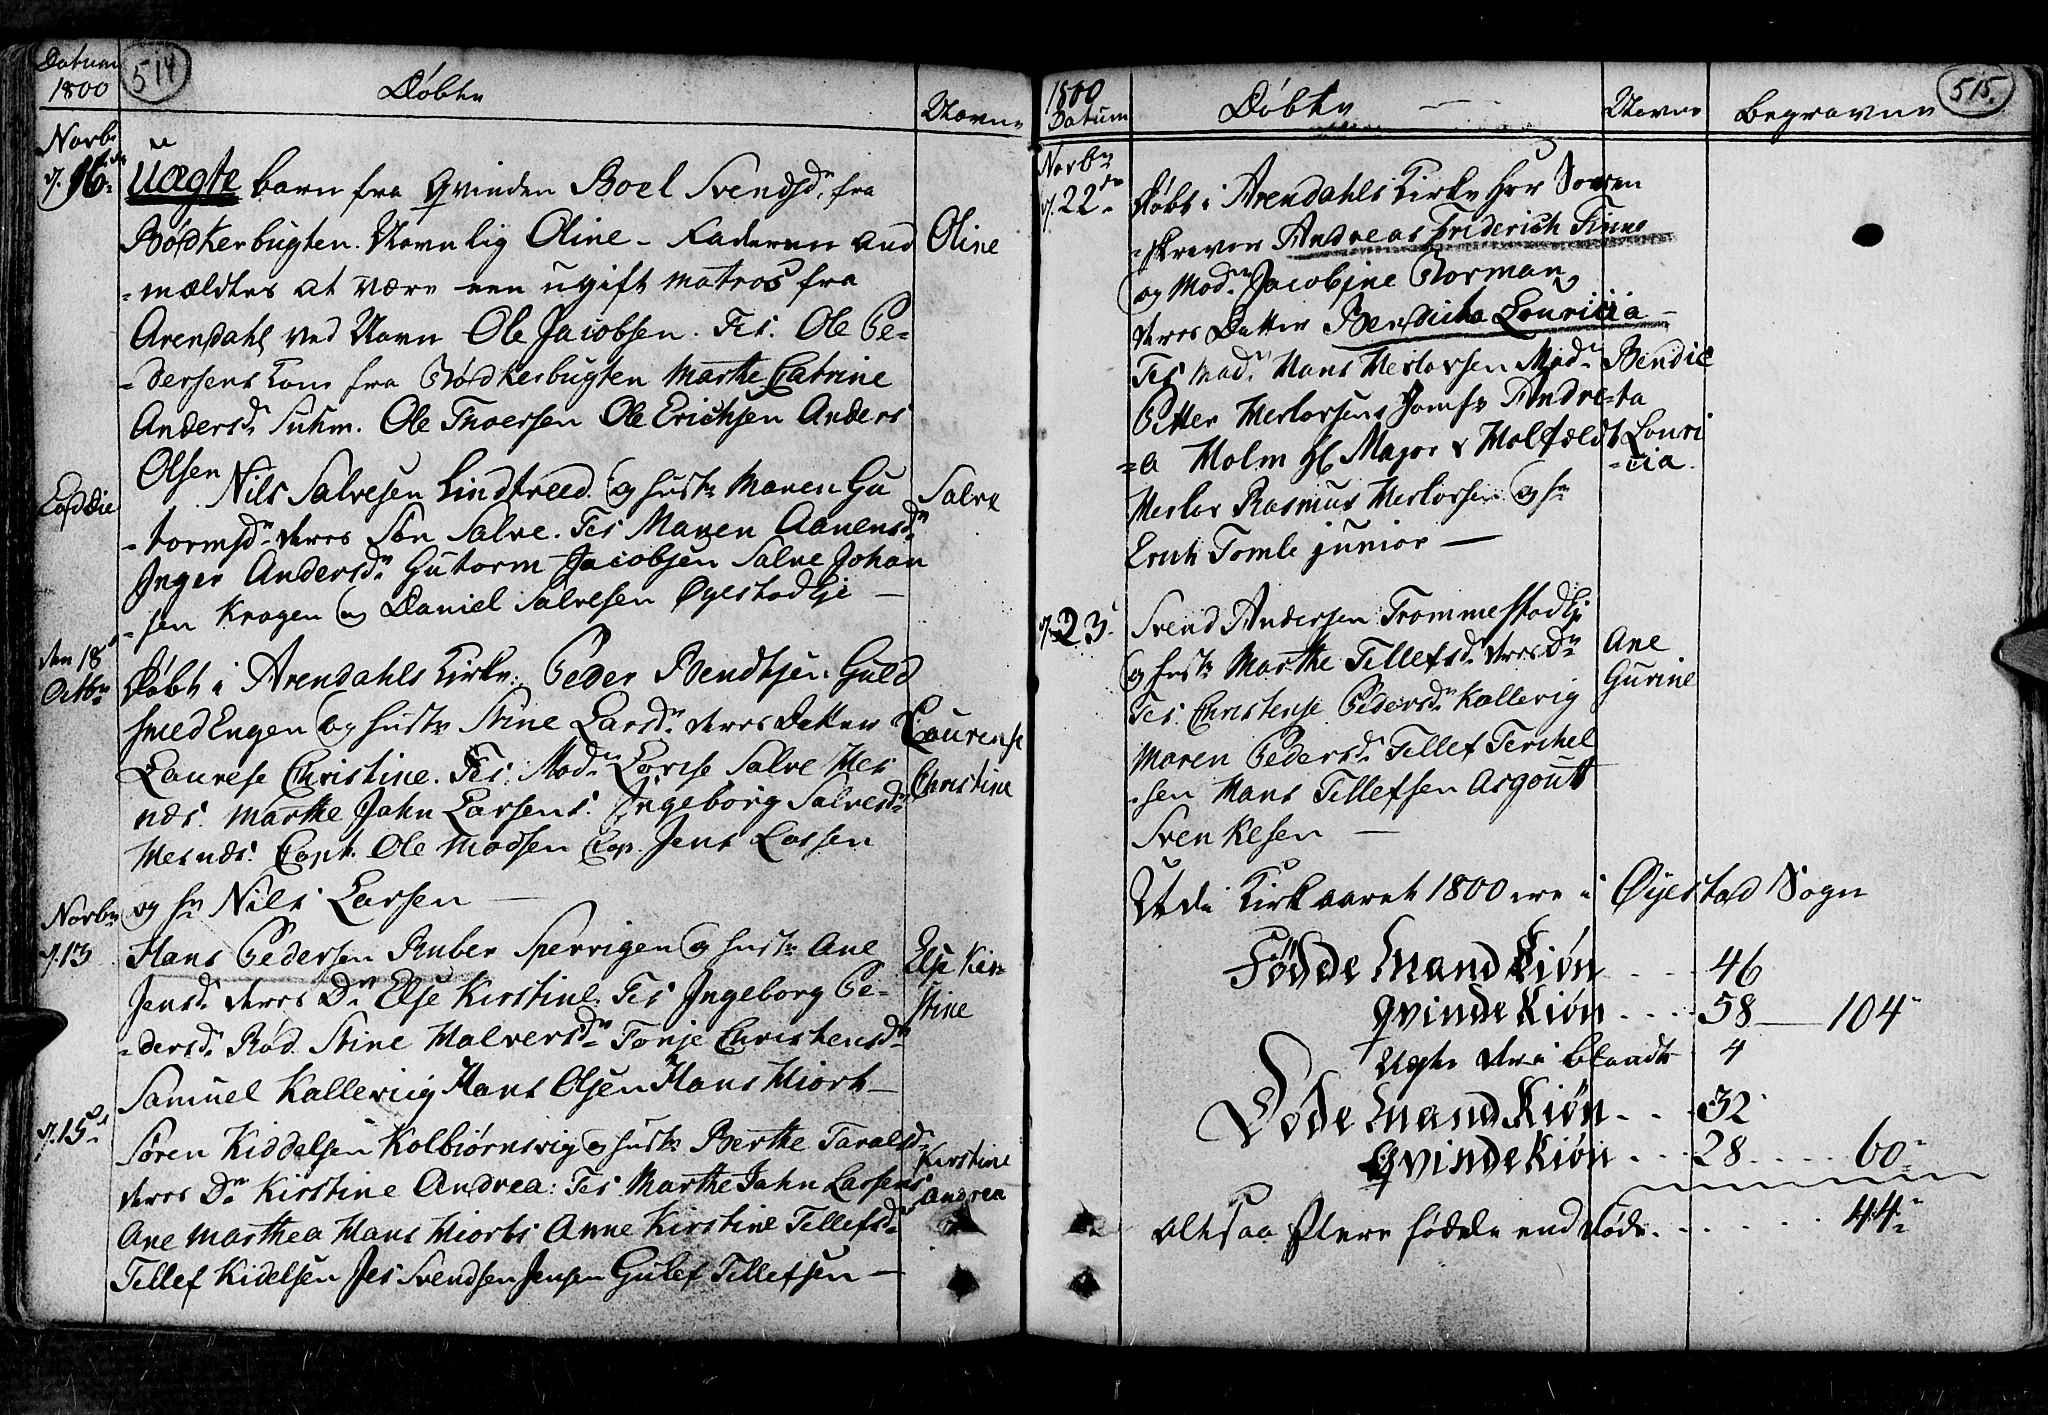 Datum
1800
514
Døbte
Navne
Novbr
d. 16de
Uægte barn fra Qvinden Boel Svendsd. fra
Bødkerbugten. Navnlig Oline - Faderen and
-mældtes at være een ugift matros fra
Arendahl ved Navn Ole Jacobsen. Tes. Ole Pe-
-dersens Kone fra Bødkerbugten Marthe Catrine
Andersd. Suhm. Ole Thoersen Ole Erichsen Anders
Olsen
Oline
Eod die
Nils Salvesen Lindtveed og hustr Maren Gu
-tormsdr deres Søn Salve. Tes Maren Aanensdr
Inger Andersdr Gutorm Jacobsen Salve Johan
-sen Kragen og Daniel Salvesen Øyestad Ej -
Salve
den 18
Octbr
Døbt i Arendahls Kirke. Peder Bendtsen Guld
smed Engen og hustr Stine Larsdr deres Datter
Laurese Christine. Tes. Madm Lovise Salve Hes
næs. Marthe Jahn Larsens. Ingeborg Salvesdr
Hesnæs. Capt. Ole Madsen Cap. Jens Lassen
og hr Nils Larsen -
Laurense
Christine
Novbr
d. 13
Hans Pedersen Buber Sperrigen og hustr Ane
Jensd. deres Dr Else Kirstine. Tes Ingeborg Pe-
-dersd. Rød. Stine Halversdr Tonje Christensdr
Samuel Kallevig Hans Olsen Hans Hiort -
Else Kir
stine
d. 15de
Søren Kiddelsen Kolbiørnsvig og hustr Berthe Taraldsdr
deres Dr Kirstine Andrea: Tes Marthe Jahn Lassens
Ane Marthea Hans Hiorts Anne Kirstine Tellefsdr
Tellef Kidelsen Jes Svendsen Jensen Gulef Tellefsen -
Kirstine
Andrea
1800
Datum
Døbte
Navne
Begravne
515.
Novbr
d. 22de
Døbt i Arendahls Kirke Hr Soren
-skrever Andreas Friderich Finne
og Madm Jacobine Dorman
deres Datter Bendicta Louricia -
Tes Mad. Hans Herlofsen Madm
Petter Herlofsens Jomfr Andre-
-a Holm H. Major v Holfeldt
Herlof Rasmus Herlofsen og hr
Erich Tomle junior -
Bendic
ta
Louri
-cia.
d. 23.
Svend Andersen Trommestad Ej
og hustr Marthe Tellefsd. deres Dr
Tes. Christense Pedersdr Kallevig
Maren Pedersdr Tellef Terchel
-sen Hans Tellefsen Asgoutt
Svenkesen -
Ane
Gurine
Udi Kirkaaret 1800 ere i Øyestad Sogn
Fødde Mandkiøn . . . 46
Qvindekiøn . . . . 58 - 104
Uægte der i blandt 4
Døde Mandkiøn . . . 32
Qvindekiøn . . . 28 . . . . 60
altsaa flere fødde end døde . . . . . . 44